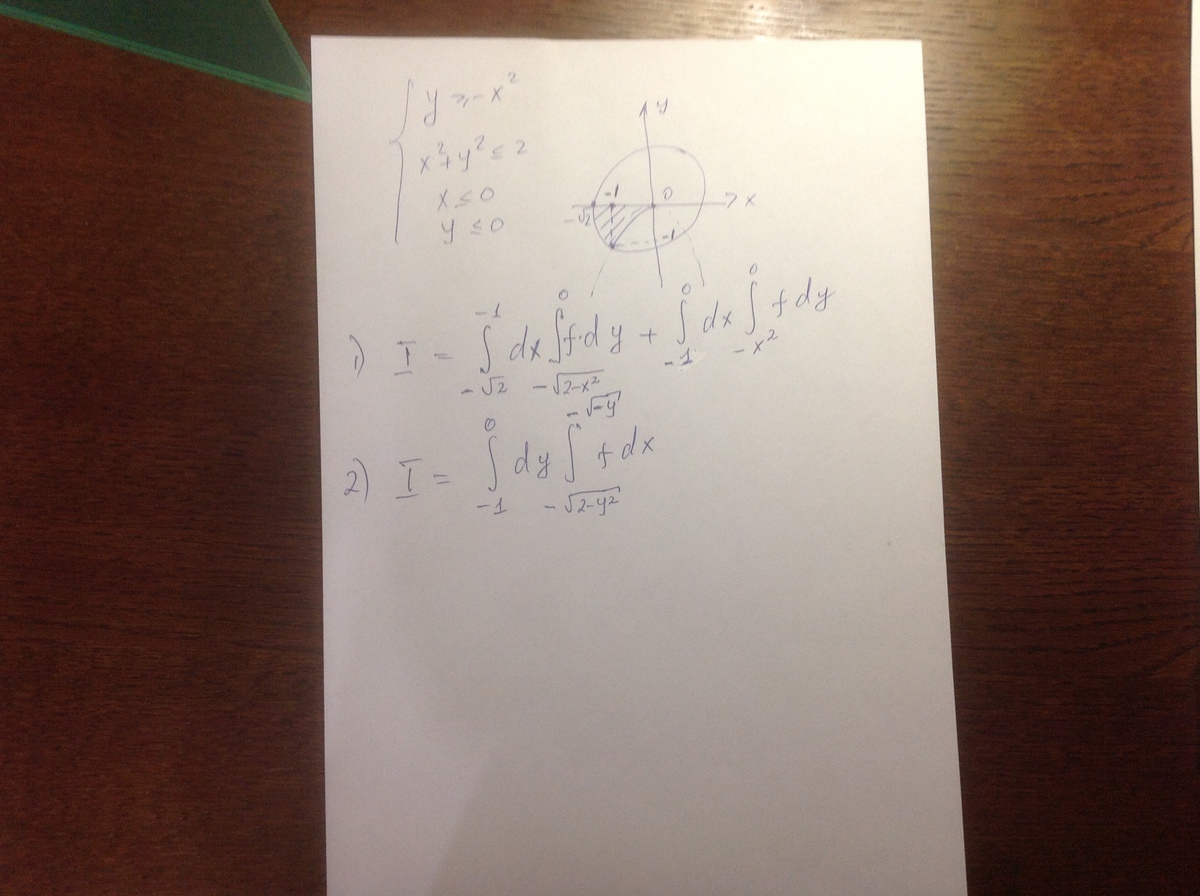 y ≥ -x²
x² + y² ≤ 2
x ≤ 0
y ≤ 0
y
-1 0 x
-√2
-1
1) I = ∫_{-√2}^{-1} dx ∫_{-√(2-x²)}^{0} f·dy + ∫_{-1}^{0} dx ∫_{-x²}^{0} f dy
2) I = ∫_{-1}^{0} dy ∫_{-√(2-y²)}^{-√(-y)} f dx